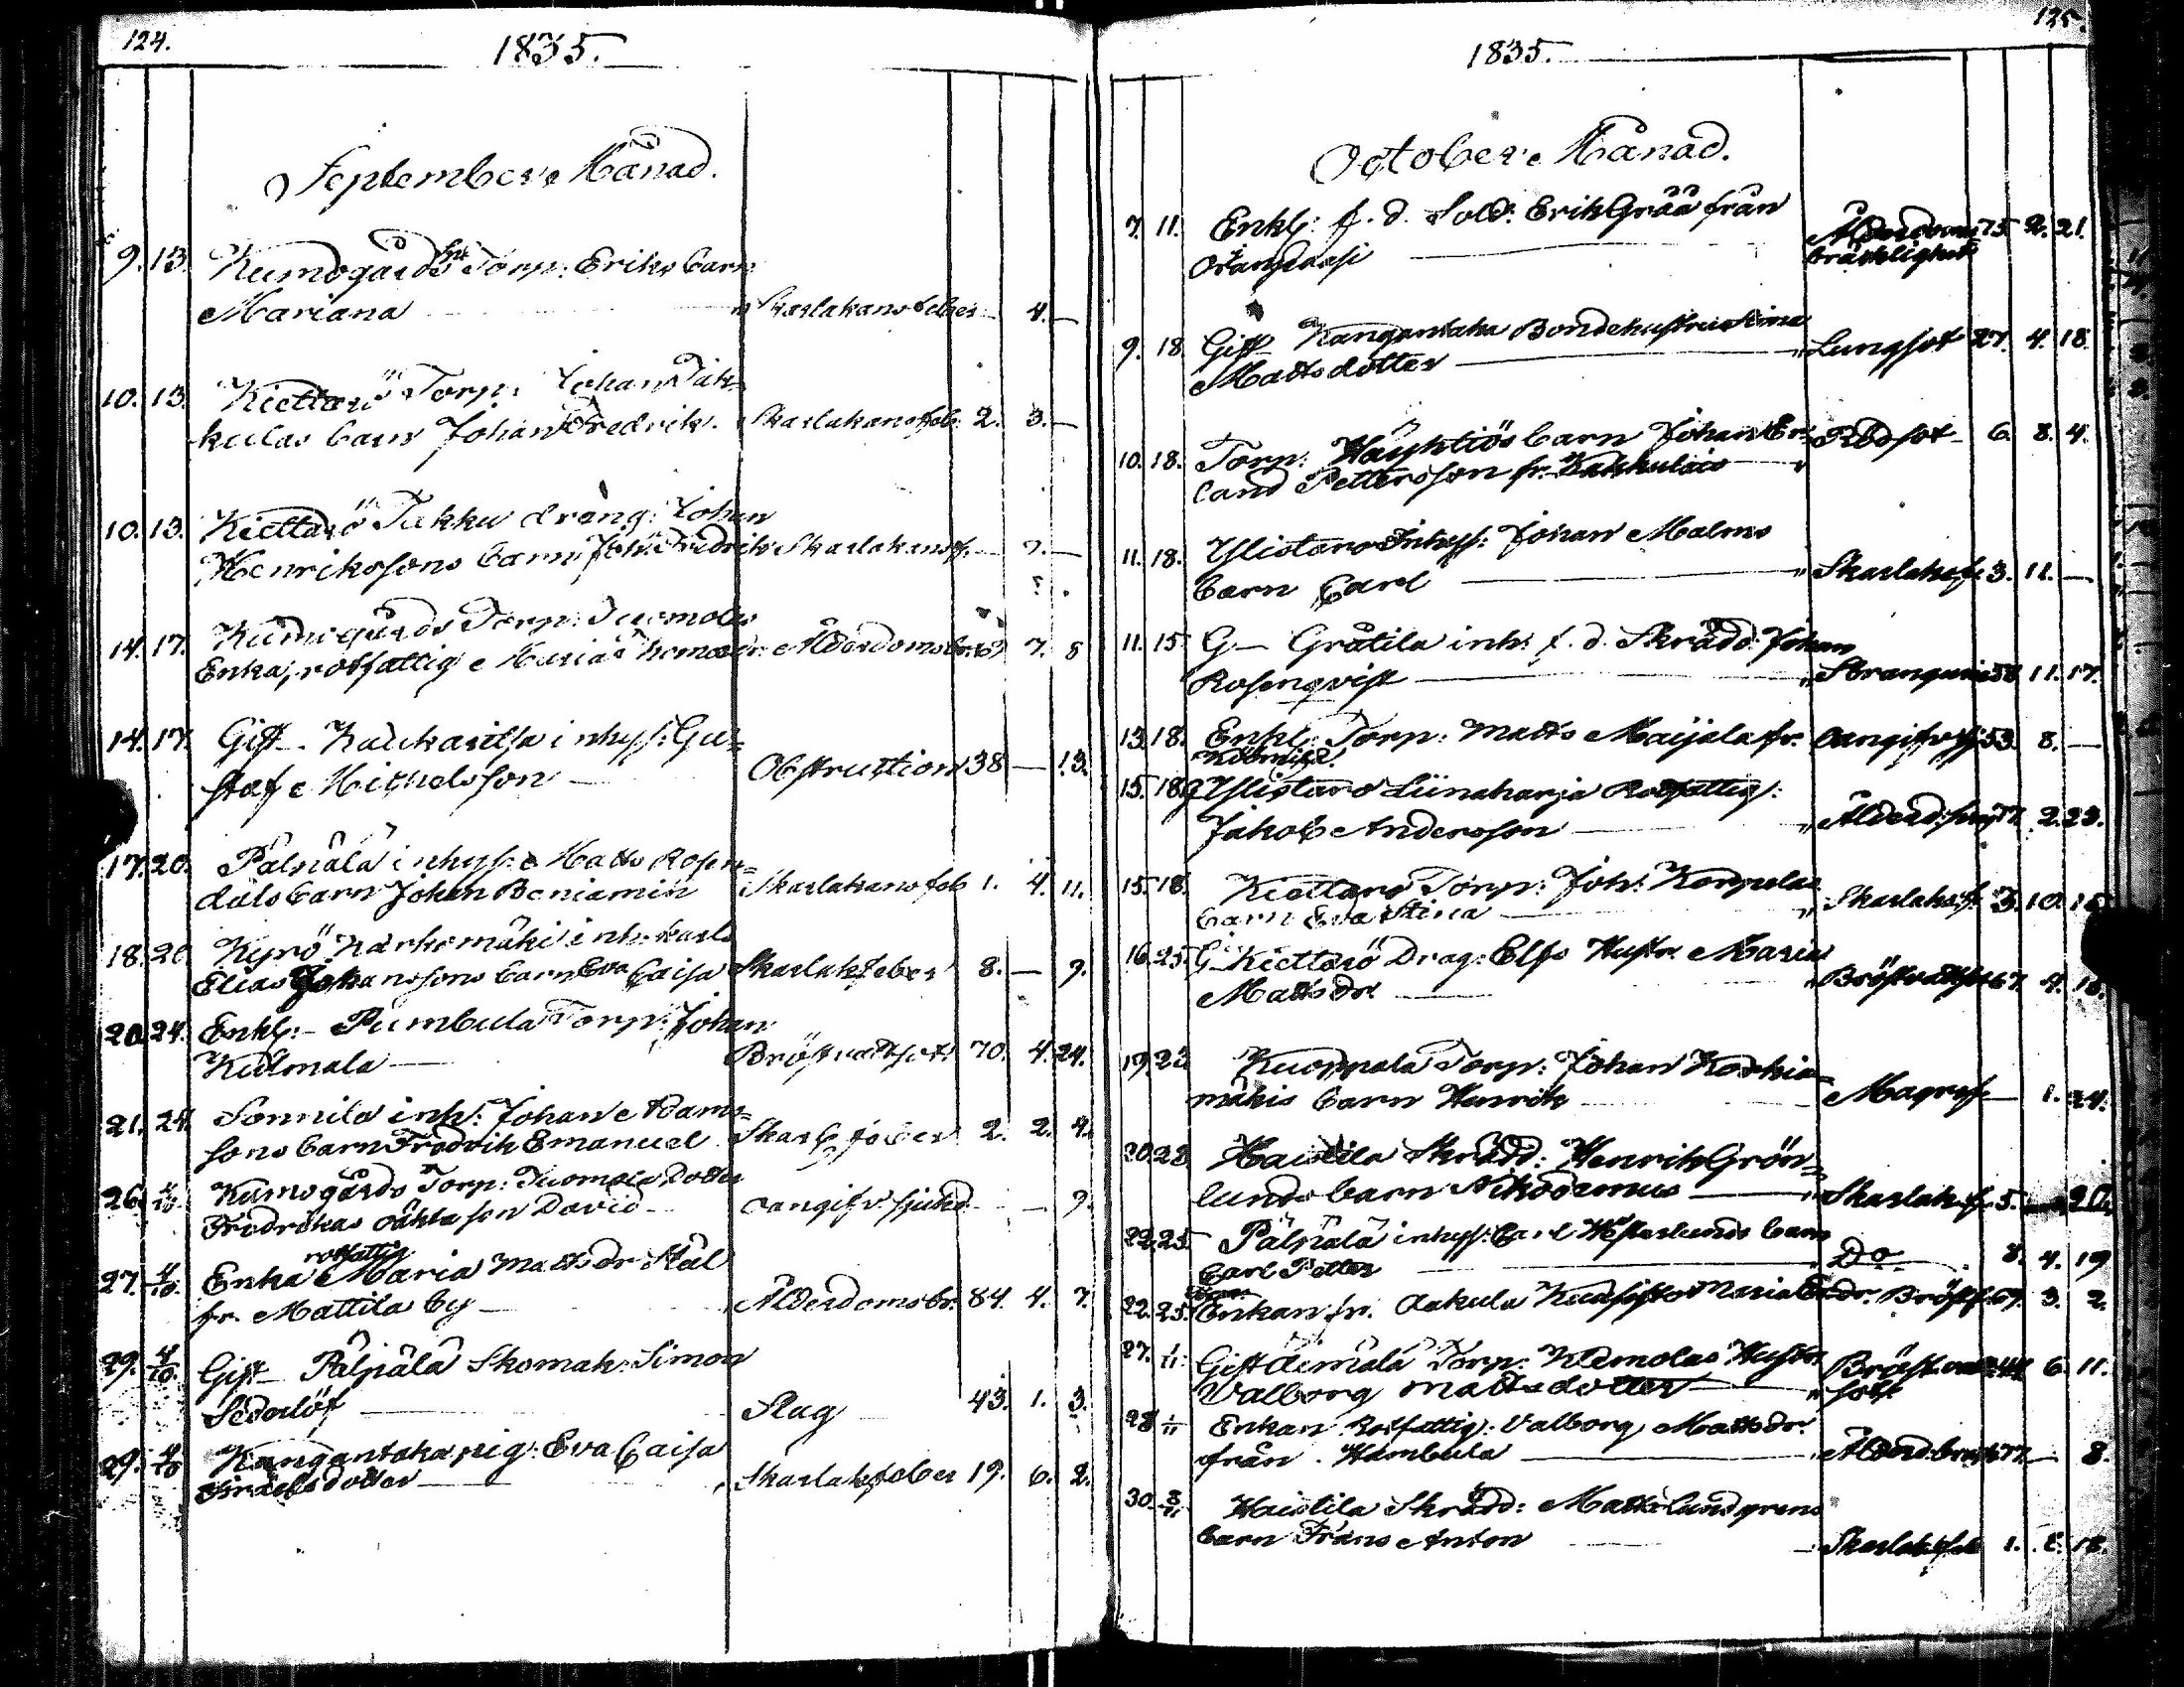 124.
1835.
September Månad.
9. 13. Kumogårds Torp: Eriks barn
Mariana " Skarlakansfeber — 4. —
10. 13. Kiettarö Torp: Johan Jak=
kulas barn Johan Fredrik. Skarlakansfeb. 2. 3. —
10. 13. Kiettarö Jakku dräng: Johan
Henrikssons barn Joh: Fredrik Skarlakansf. — 7. —
14. 17. Kumogårds Torp: Tuomolas
Enka, rotfattig Maria Ålderdomsbr. 7. 8
14. 17. Gift — inhys: Gu=
staf Michelsson — Obstruction 38 — 13.
17. 20. Pälpälä inhys: Matts Rosen=
dals barn Johan Beniamin Skarlakansfeb 1. 4. 11.
18. 20. Kyrö Karhomäki inh: karls
Elias Johanssons barn Eva Caisa Skarlaksfeber 8. — 9.
20. 24. Enkl: — Pumbula Torp: Johan
Kulmala — Bröstvattsot 70. 4. 24.
21. 24. Sonnila inh: Johan Adams=
sons barn Fredrik Emanuel Skarl. feber 2. 2. 4.
26. 4/10. Kumogårds Torp: Tuomola dotter
Fredrikas oäkta son David — oangifv. sjukd. — — 9.
rotfattig
27. 4/10. Enka Maria Mattsdr Stål
fr. Mattila by — Ålderdomsbr. 84. 4. 7.
29. 4/10. Gift Pälpälä Skomak: Simon
Sederlöf — Slag 43. 1. 3.
29. 4/10 Kangantaka pig: Eva Caisa
Israelsdotter — Skarlaksfeber 19. 6. 2.
125.
1835.
October Månad.
7. 11. Enkl: f. d. Sold: Erik Gråå från
— Ålderdoms 75 2. 21.
bräcklighet
9. 18. Gift Kangantaka Bondehustru Stina
Mattsdotter — " Lungsot 27. 4. 18.
10. 18. Torp: Häyhtiös barn Johan Er= Rödsot 6. 8. 4.
land Pettersson fr. Kakkulais
11. 18. Ylistaro Inhys: Johan Malms
barn Carl — " Skarlaksf. 3. 11. —
11. 15. G— Gråtila inh: f. d. Skrädd: Johan
Rosenqvist — " Strangurie 58 11. 17.
13. 18. Enkl: Torp: Matts Maijala fr. oangifv. 53. 8. —
15. 18. G Ylistaro Liinaharja Rotfattig:
Jakob Andersson — " Ålderd: 77. 2. 23.
15. 18. Kiettarö Torp: Joh: Korpelas
barn Eva Stina — " Skarlaksf. 3. 10. 15.
16. 25. G— Kiettarö Drag: Elfs Hustr. Maria
Mattsdr — " Bröstvattsot 67. 4. 18.
19. 23. Kuoppala Torp: Johan Korkia=
mäkis barn Henrik — Magref — 1. 24.
20. 28. Haistila Skrädd: Henrik Grön=
lunds barn Nikodemus — " Skarlak.f. 5. — 20.
22. 25. Pälpälä inhys: Carl Westerlunds barn
Carl Petter — Do 8. 4. 19
22. 25. Enkan fr. Aakula Maria Bröstf. 69. 3. 2.
27. 1/11. Gift Torp: Klemolas Hustru Bröstvatt 6. 11.
Valborg Mattsdotter — " sot
28. 1/11 Enkan Rotfattig: Valborg Mattsdr.
från Humbula — " Ålderd.bräck 77. — 8.
30. 8/11 Haistila Skrädd: Matts Lundgrens
barn Frans Anton — Skarlaksfeb 1. 18.